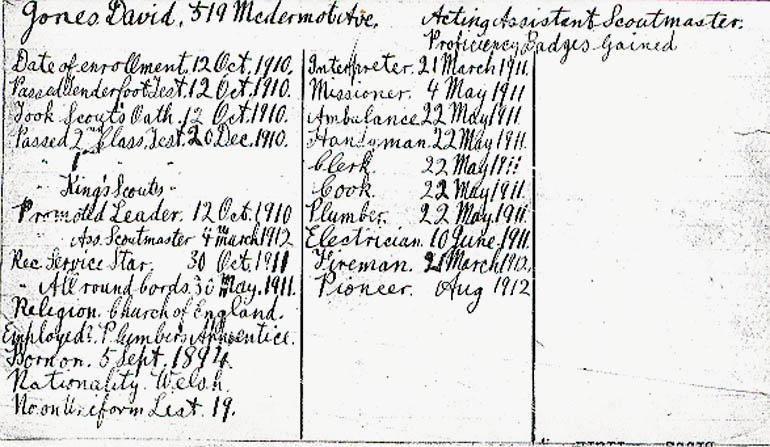 Jones David, 519 Mcdermot Ave. Acting Assistant Scoutmaster.
Proficiency Badges Gained
Date of enrollment. 12 Oct. 1910.
Passed Tenderfoot Test. 12 Oct. 1910.
Took Scout's Oath. 12 Oct. 1910.
Passed 2nd Class Test. 20 Dec. 1910.
" 1 " "
" King's Scouts "
Promoted Leader. 12 Oct. 1910
" Ass. Scoutmaster 4th March 1912
Rec. Service Star. 30 Oct. 1911
" All round cords. 30 May. 1911.
Religion. Church of England.
Employed?. Plumber's Apprentice.
Born on. 5 Sept. 1894.
Nationality. Welsh.
No. on Uniform List. 19.
Interpreter. 21 March 1911.
Missioner. 4 May 1911
Ambulance 22 May 1911
Handyman. 22 May 1911.
Clerk. 22 May 1911
Cook. 22 May 1911.
Plumber. 22 May 1911.
Electrician. 10 June 1911.
Fireman. 21 March 1912.
Pioneer. Aug 1912